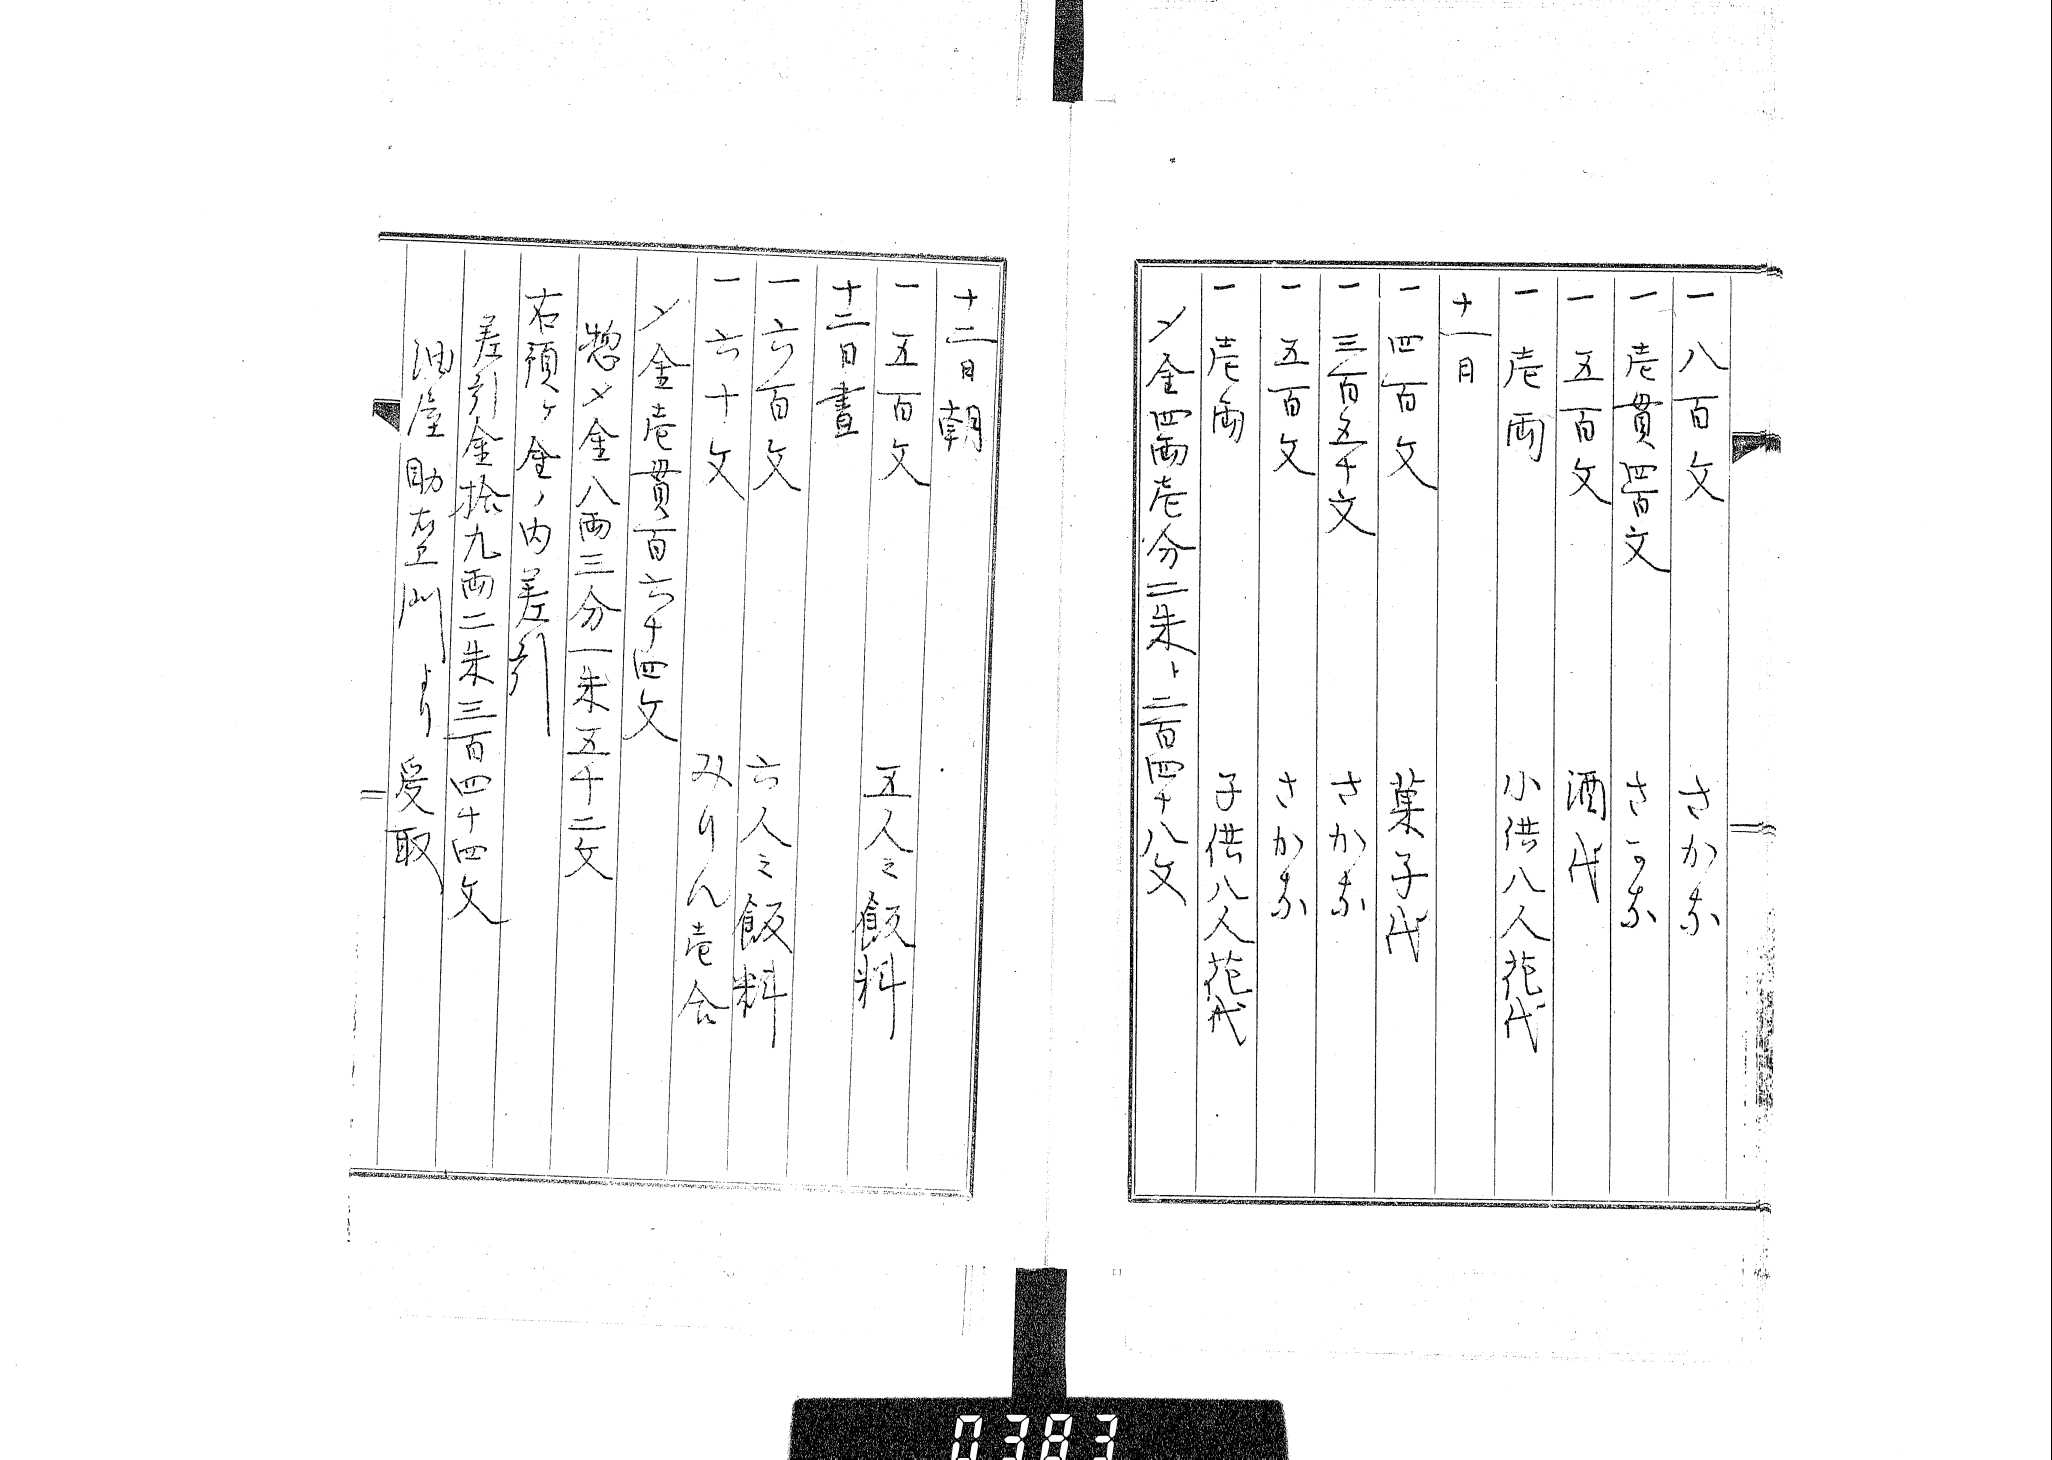 一 八百文 さかな
一 壱貫四百文 さかな
一 五百文 酒代
一 壱両 小供八人花代
十一日
一 四百文 菓子代
一 三百五十文 さかな
一 五百文 さかな
一 壱両 子供八人花代
〆金四両壱分二朱ト二百四十八文
十二日朝
一 五百文 五人之飯料
十二日昼
一 六百文 六人之飯料
一 六十文 みりん壱合
〆金壱貫百六十四文
惣〆金八両三分一朱五十二文
右預ヶ金ノ内差引
差引金拾九両二朱三百四十四文
油屋助右衛門より受取
0383